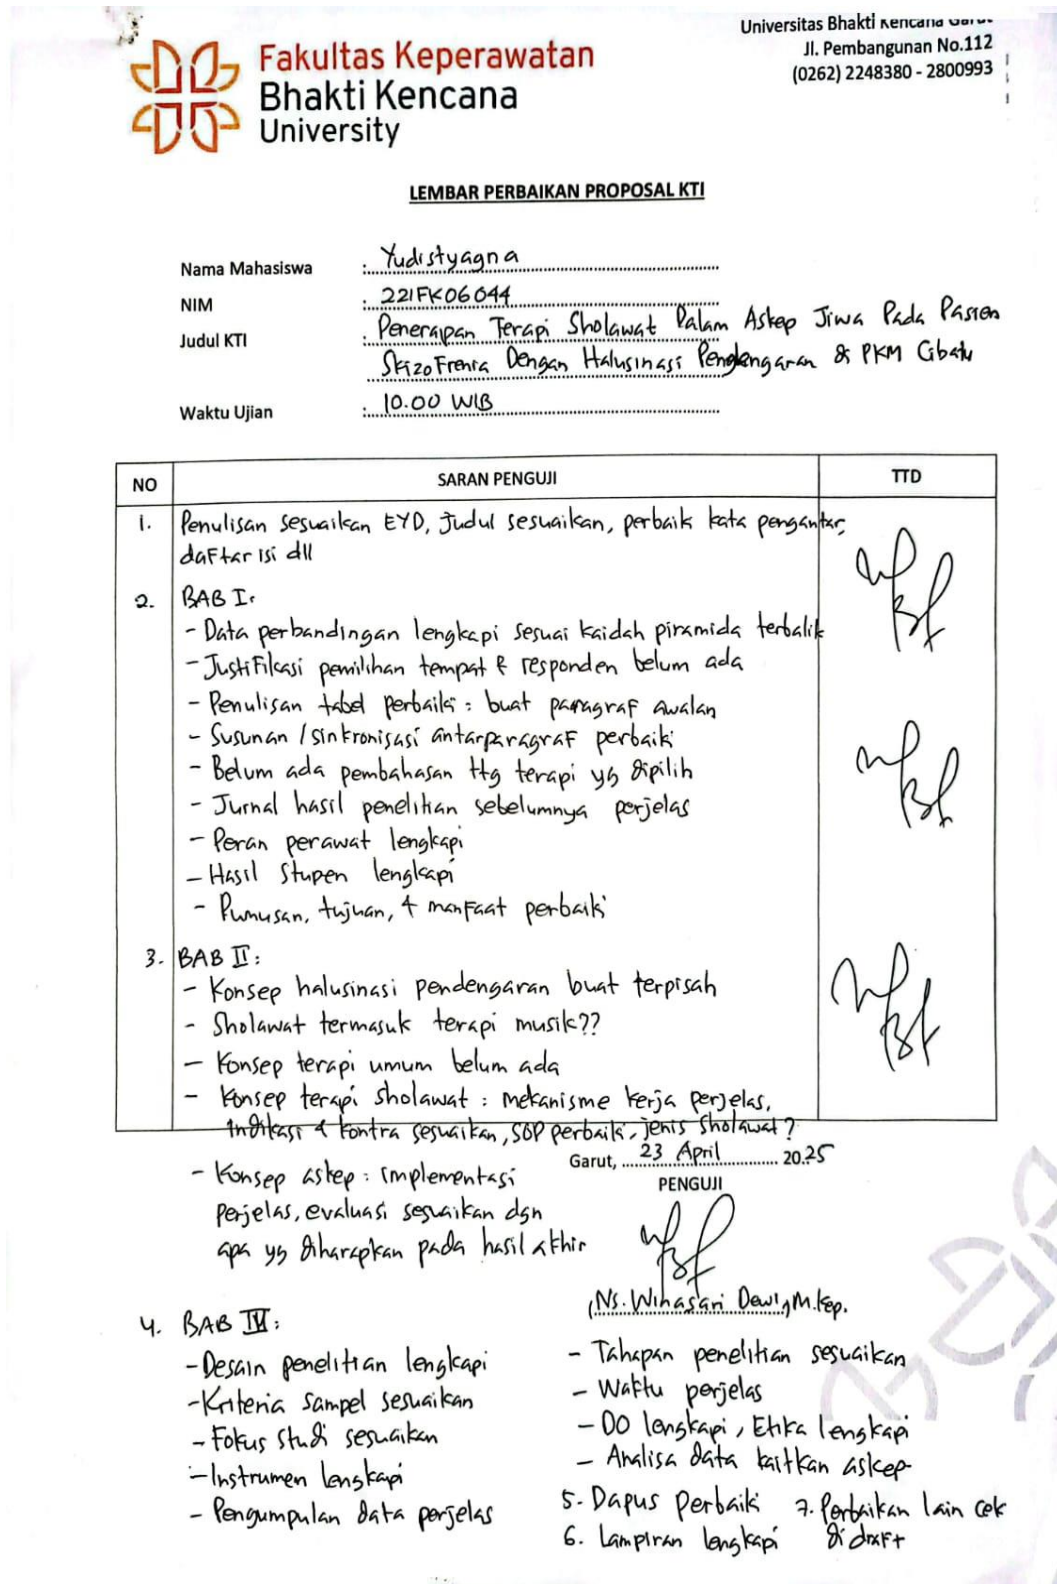 Fakultas Keperawatan
Bhakti Kencana
University
Universitas Bhakti Kencana Garut
Jl. Pembangunan No.112
(0262) 2248380 - 2800993
LEMBAR PERBAIKAN PROPOSAL KTI
Nama Mahasiswa : Yudistyagna
NIM : 221FK06044
Judul KTI : Penerapan Terapi Sholawat Dalam Askep Jiwa Pada Pasien
Skizofrenia Dengan Halusinasi Pendengaran di PKM Cibatu
Waktu Ujian : 10.00 WIB
NO SARAN PENGUJI TTD
1. Penulisan sesuaikan EYD, Judul sesuaikan, perbaik kata pengantar,
daftar isi dll
2. BAB I:
- Data perbandingan lengkapi sesuai kaidah piramida terbalik
- Justifikasi pemilihan tempat & responden belum ada
- Penulisan tabel perbaiki : buat paragraf awalan
- Susunan / sinkronisasi antarparagraf perbaiki
- Belum ada pembahasan ttg terapi yg dipilih
- Jurnal hasil penelitian sebelumnya perjelas
- Peran perawat lengkapi
- Hasil stupen lengkapi
- Rumusan, tujuan, & manfaat perbaiki
3. BAB II:
- Konsep halusinasi pendengaran buat terpisah
- Sholawat termasuk terapi musik??
- Konsep terapi umum belum ada
- Konsep terapi sholawat : mekanisme kerja perjelas,
indikasi & kontra sesuaikan, SOP perbaiki, jenis sholawat?
Garut, 23 April 2025
- Konsep askep : implementasi
perjelas, evaluasi sesuaikan dgn
apa yg diharapkan pada hasil akhir
PENGUJI
(Ns. Winasari Dewi, M.Kep.
4. BAB III:
- Desain penelitian lengkapi
- Kriteria sampel sesuaikan
- Fokus studi sesuaikan
- Instrumen lengkapi
- Pengumpulan data perjelas
- Tahapan penelitian sesuaikan
- Waktu perjelas
- DO lengkapi, Etika lengkapi
- Analisa data kaitkan askep
5. Dapus perbaiki
6. Lampiran lengkapi
7. Perbaikan lain cek
di draft